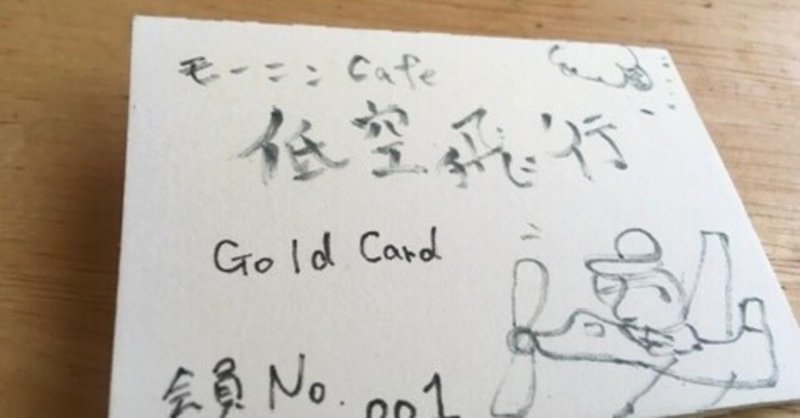 モーニン Cafe
低空飛行
Gold Card
会員 No. 001